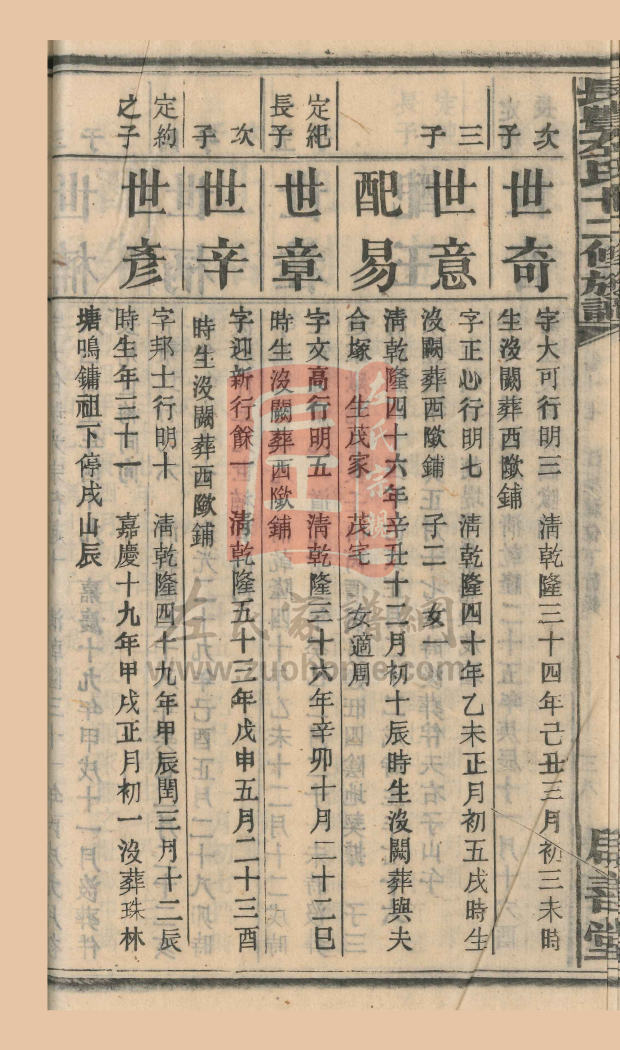 長豐左氏十二修族譜
次子
世奇
字大可行明三　清乾隆三十四年己丑三月初三未時
生沒闕葬西歐鋪
三子
世意
字正心行明七　清乾隆四十年乙未正月初五戌時生
沒闕葬西歐鋪　子二　女一
配易
清乾隆四十六年辛丑十二月初十辰時生沒闕葬與夫
合塚　生茂家　茂宅　女適周
定紀長子
世章
字文高行明五　清乾隆三十六年辛卯十月二十三巳
時生沒闕葬西歐鋪
次子
世辛
字迎新行餘一　清乾隆五十三年戊申五月二十三酉
時生沒闕葬西歐鋪
定約之子
世彥
字邦士行明十　清乾隆四十九年甲辰閏三月十二辰
時生年三十一　嘉慶十九年甲戌正月初一沒葬珠林
塘鳴鏞祖下停戌山辰
左氏宗譜網
www.zuohome.com